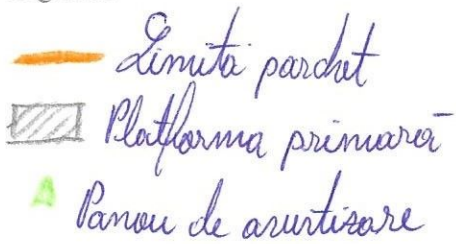 Limită parchet
Platforma primară
Panou de avertizare